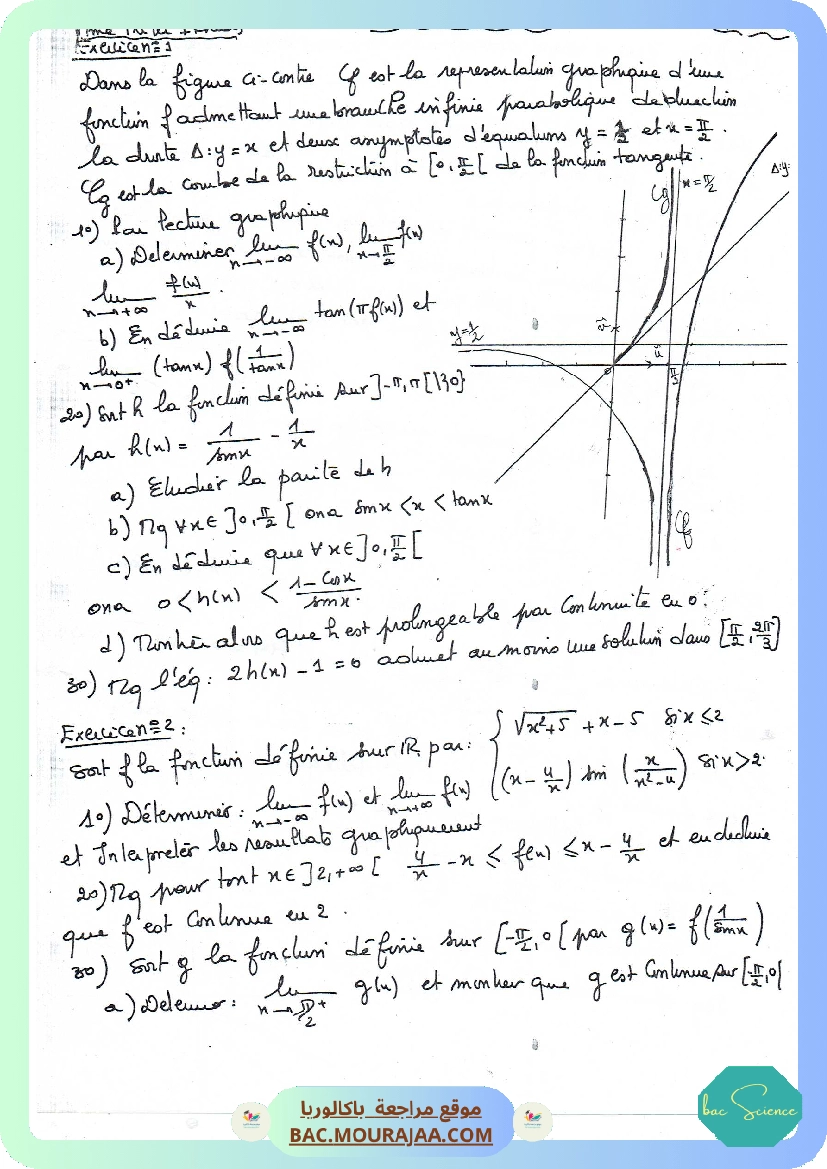 Exercice n=1
Dans la figure ci-contre Cf est la representation graphique d'une
fonction f admettant une branche infinie parabolique de direction
la droite Δ:y = x et deux asymptotes d'équations y = 1/2 et x = π/2.
Cg est la courbe de la restriction à [0, π/2[ de la fonction tangente.
1°) Par lecture graphique
a) Determiner lim x→-∞ f(x), lim x→π/2 f(x)
lim x→+∞ f(x)/x.
b) En déduire lim x→-∞ tan(πf(x)) et
lim x→0+ (tanx) f(1/tanx)
Cg
x=π/2
Δ:y:
y=1/2
Cf
2°) Soit h la fonction définie sur ]-π, π[\{0}
par h(x) = 1/sinx - 1/x
a) Etudier la parité de h
b) Mq ∀x∈]0, π/2[ ona sinx < x < tanx
c) En déduire que ∀x∈]0, π/2[
ona 0 < h(x) < 1-cosx/sinx.
d) Montrer alors que h est prolongeable par continuité en 0.
3°) Mq l'éq: 2h(x) - 1 = 0 admet au moins une solution dans [π/2, 2π/3]
Exercice n=2:
Soit f la fonction définie sur IR par: { √x²+5 + x - 5 si x ≤ 2
(x - 4/x) sin (x/x²-4) si x > 2.
1°) Déterminer: lim x→-∞ f(x) et lim x→+∞ f(x)
et Interpreter les resultats graphiquement
2°) Mq pour tout x∈]2,+∞[ 4/x - x ≤ f(x) ≤ x - 4/x et en deduire
que f est continue en 2.
3°) Soit g la fonction définie sur [-π/2, 0[ par g(x) = f(1/sinx)
a) Determer: lim x→π/2+ g(x) et montrer que g est continue sur [-π/2, 0[
موقع مراجعة باكالوريا
BAC.MOURAJAA.COM
bac Science